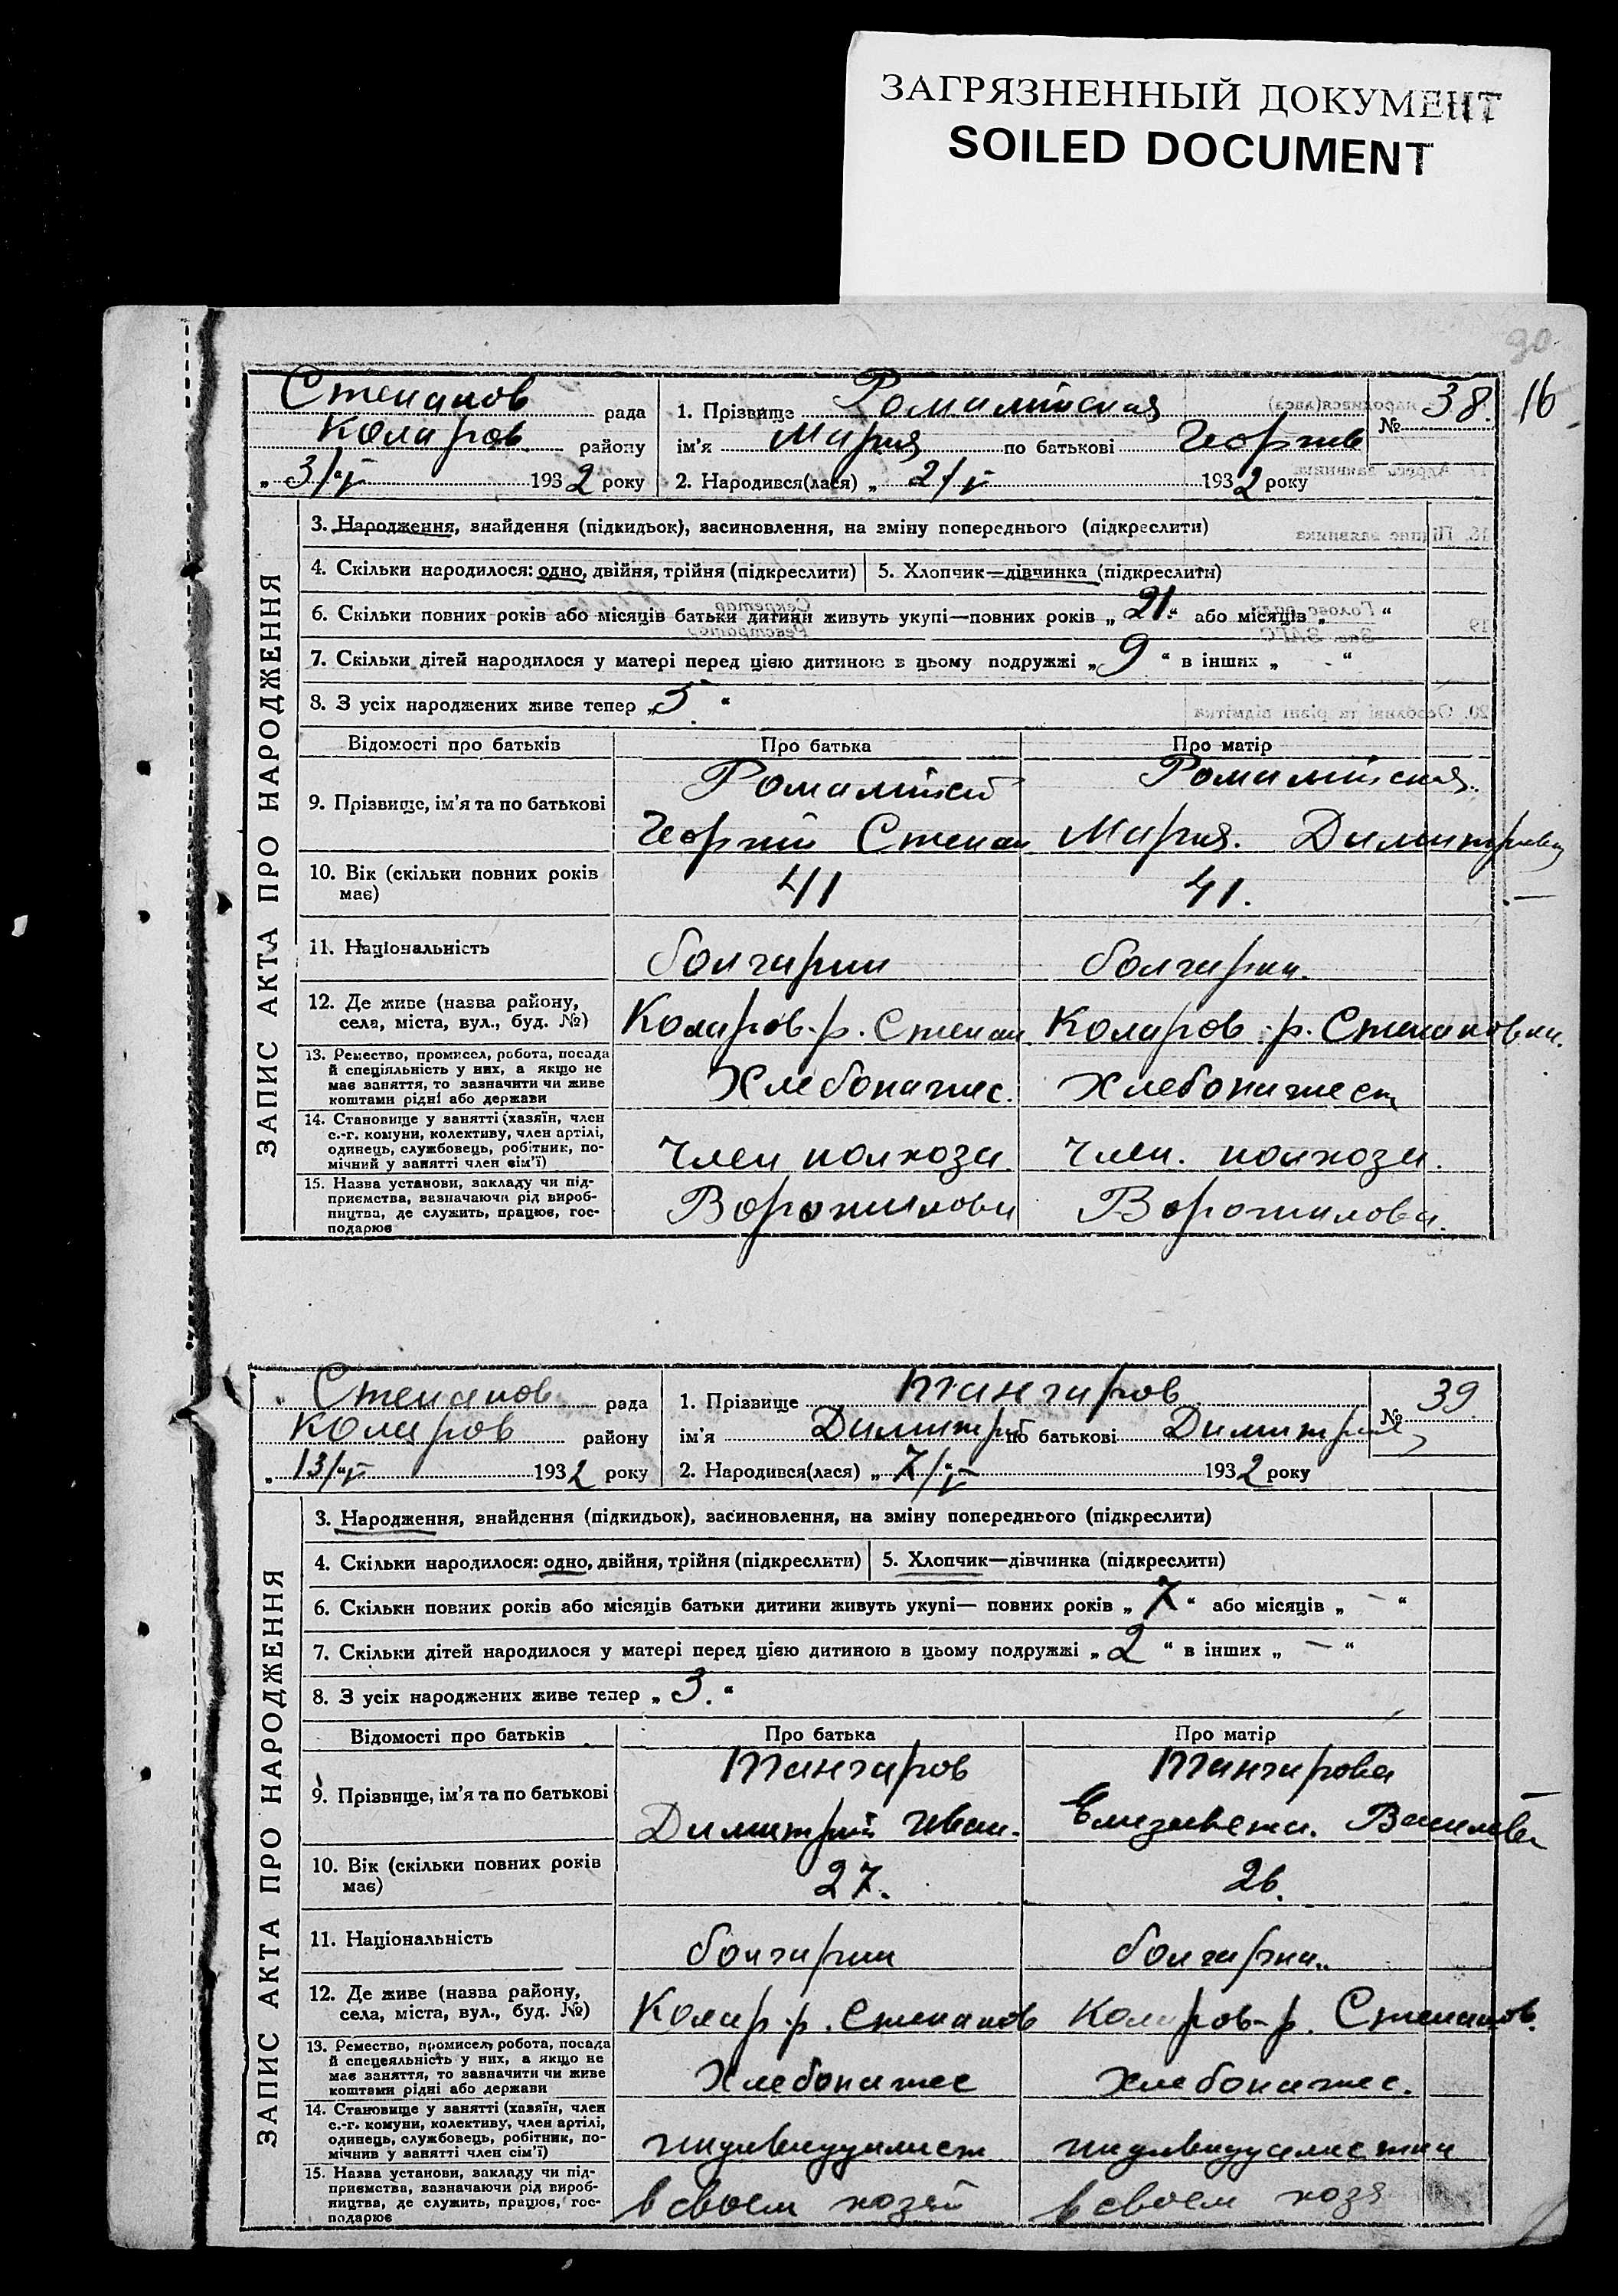 ЗАГРЯЗНЕННЫЙ ДОКУМЕНТ
SOILED DOCUMENT
90
16
Степанов рада
Коларов району
„ 3/V 1932 року
1. Прізвище
ім'я Мария по батькові Георгиев
2. Народився(лася) „ 2/V 1932 року
№ 38.
ЗАПИС АКТА ПРО НАРОДЖЕННЯ
3. Народження, знайдення (підкидьок), засиновлення, на зміну попереднього (підкреслити)
4. Скільки народилося: одно, двійня, трійня (підкреслити) 5. Хлопчик—дівчинка (підкреслити)
6. Скільки повних років або місяців батьки дитини живуть укупі—повних років „ 21. “ або місяців „ “
7. Скільки дітей народилося у матері перед цією дитиною в цьому подружжі „ 9 “ в інших „ - “
8. З усіх народжених живе тепер „ 5. “
Відомості про батьків Про батька Про матір
9. Прізвище, ім'я та по батькові
Георгий Степан Мария. Димитриевн
10. Вік (скільки повних років має) 41 41.
11. Національність болгарин болгарка.
12. Де живе (назва району, села, міста, вул., буд. №) Коларов-р. Степан. Коларов-р. Степановки.
13. Ремество, промисел, робота, посада й спеціяльність у них, а якщо не має заняття, то зазначити чи живе коштами рідні або держави Хлебопашес. Хлебопашест
14. Становище у занятті (хазяїн, член с.-г. комуни, колективу, член артілі, одинець, службовець, робітник, помічний у занятті член сім'ї) Член колхоза. Член. колхоза.
15. Назва установи, закладу чи підприємства, зазначаючи рід виробництва, де служить, працює, господарює Ворошилова Ворошилова.
Степанов рада
Коларов району
„ 13/V 1932 року
1. Прізвище Тангаров
ім'я Димитрий по батькові Димитрие
2. Народився(лася) „ 7/V 1932 року
№ 39
ЗАПИС АКТА ПРО НАРОДЖЕННЯ
3. Народження, знайдення (підкидьок), засиновлення, на зміну попереднього (підкреслити)
4. Скільки народилося: одно, двійня, трійня (підкреслити) 5. Хлопчик—дівчинка (підкреслити)
6. Скільки повних років або місяців батьки дитини живуть укупі— повних років „ 7 “ або місяців „ — “
7. Скільки дітей народилося у матері перед цією дитиною в цьому подружжі „ 2 “ в інших „ — “
8. З усіх народжених живе тепер „ 3. “
Відомості про батьків Про батька Про матір
9. Прізвище, ім'я та по батькові Тангаров Тангарова
Димитрий Иван. Елизавета. Василева
10. Вік (скільки повних років має) 27. 26.
11. Національність болгарин болгарка.
12. Де живе (назва району, села, міста, вул., буд. №) Колар.р. Степанов Коларов-р. Степанов.
13. Ремество, промисел, робота, посада й спецеяльність у них, а якщо не має заняття, то зазначити чи живе коштами рідні або держави Хлебопашес Хлебопашес.
14. Становище у занятті (хазяїн, член с.-г. комуни, колективу, член артілі, одинець, службовець, робітник, помічнив у занятті член сім'ї) индивидуалист индивидуалистка
15. Назва установи, закладу чи підприємства, зазначаючи рід виробництва, де служить, працює, господарює в своем хозяй в своем хозя